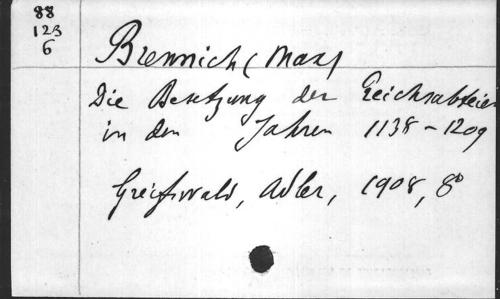 88
123
6
Brennich (Max)
Die Besetzung der Reichsabteien
in den Jahren 1138-1209
Greifswald, Adler, 1908, 8°